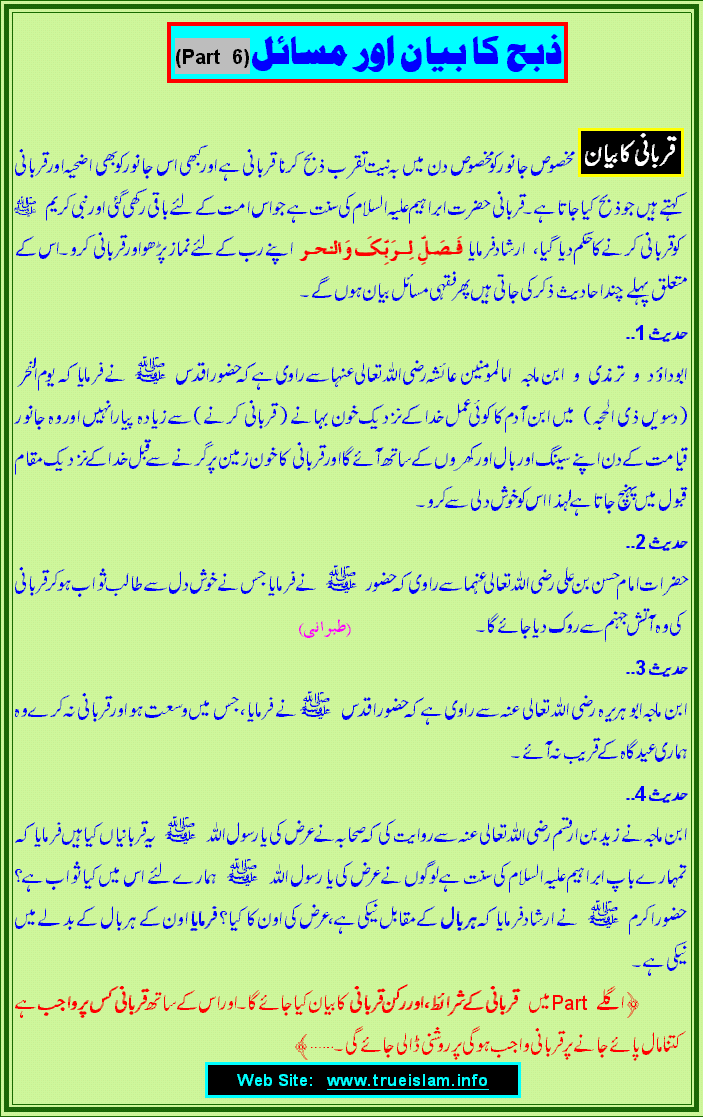 ذبح کا بیان اور مسائل (Part 6)
قربانی کا بیان مخصوص جانور کو مخصوص دن میں بہ نیت تقرب ذبح کرنا قربانی ہے اور کبھی اس جانور کو بھی اضحیہ اور قربانی
کہتے ہیں جو ذبح کیا جاتا ہے۔ قربانی حضرت ابراہیم علیہ السلام کی سنت ہے جو اس امت کے لئے باقی رکھی گئی اور نبی کریم ﷺ
کو قربانی کرنے کا حکم دیا گیا، ارشاد فرمایا فَصَلِّ لِرَبِّکَ وَالنحر اپنے رب کے لئے نماز پڑھو اور قربانی کرو۔ اس کے
متعلق پہلے چند احادیث ذکر کی جاتی ہیں پھر فقہی مسائل بیان ہوں گے۔
حدیث 1۔۔
ابوداؤد و ترمذی و ابن ماجہ ام المومنین عائشہ رضی اللہ تعالی عنہا سے راوی ہے کہ حضور اقدس ﷺ نے فرمایا کہ یوم النحر
(دسویں ذی الحجہ) میں ابن آدم کا کوئی عمل خدا کے نزدیک خون بہانے (قربانی کرنے) سے زیادہ پیارا نہیں اور وہ جانور
قیامت کے دن اپنے سینگ اور بال اور کھروں کے ساتھ آئے گا اور قربانی کا خون زمین پر گرنے سے قبل خدا کے نزدیک مقام
قبول میں پہنچ جاتا ہے لہذا اس کو خوش دلی سے کرو۔
حدیث 2۔۔
حضرات امام حسن بن علی رضی اللہ تعالی عنہما سے راوی کہ حضور ﷺ نے فرمایا جس نے خوش دل سے طالب ثواب ہو کر قربانی
کی وہ آتش جہنم سے روک دیا جائے گا۔ (طبرانی)
حدیث 3۔۔
ابن ماجہ ابو ہریرہ رضی اللہ تعالی عنہ سے راوی ہے کہ حضور اقدس ﷺ نے فرمایا، جس میں وسعت ہو اور قربانی نہ کرے وہ
ہماری عید گاہ کے قریب نہ آئے۔
حدیث 4۔۔
ابن ماجہ نے زید بن ارقسم رضی اللہ تعالی عنہ سے روایت کی کہ صحابہ نے عرض کی یا رسول اللہ ﷺ یہ قربانیاں کیا ہیں فرمایا کہ
تمہارے باپ ابراہیم علیہ السلام کی سنت ہے لوگوں نے عرض کی یا رسول اللہ ﷺ ہمارے لئے اس میں کیا ثواب ہے؟
حضور اکرم ﷺ نے ارشاد فرمایا کہ ہر بال کے مقابل نیکی ہے، عرض کی اون کا کیا؟ فرمایا اون کے ہر بال کے بدلے میں
نیکی ہے۔
﴿اگلے Part میں قربانی کے شرائط، اور رکن قربانی کا بیان کیا جائے گا۔ اور اس کے ساتھ قربانی کس پر واجب ہے
کتنا مال پائے جانے پر قربانی واجب ہوگی پر روشنی ڈالی جائے گی۔......﴾
Web Site: www.trueislam.info